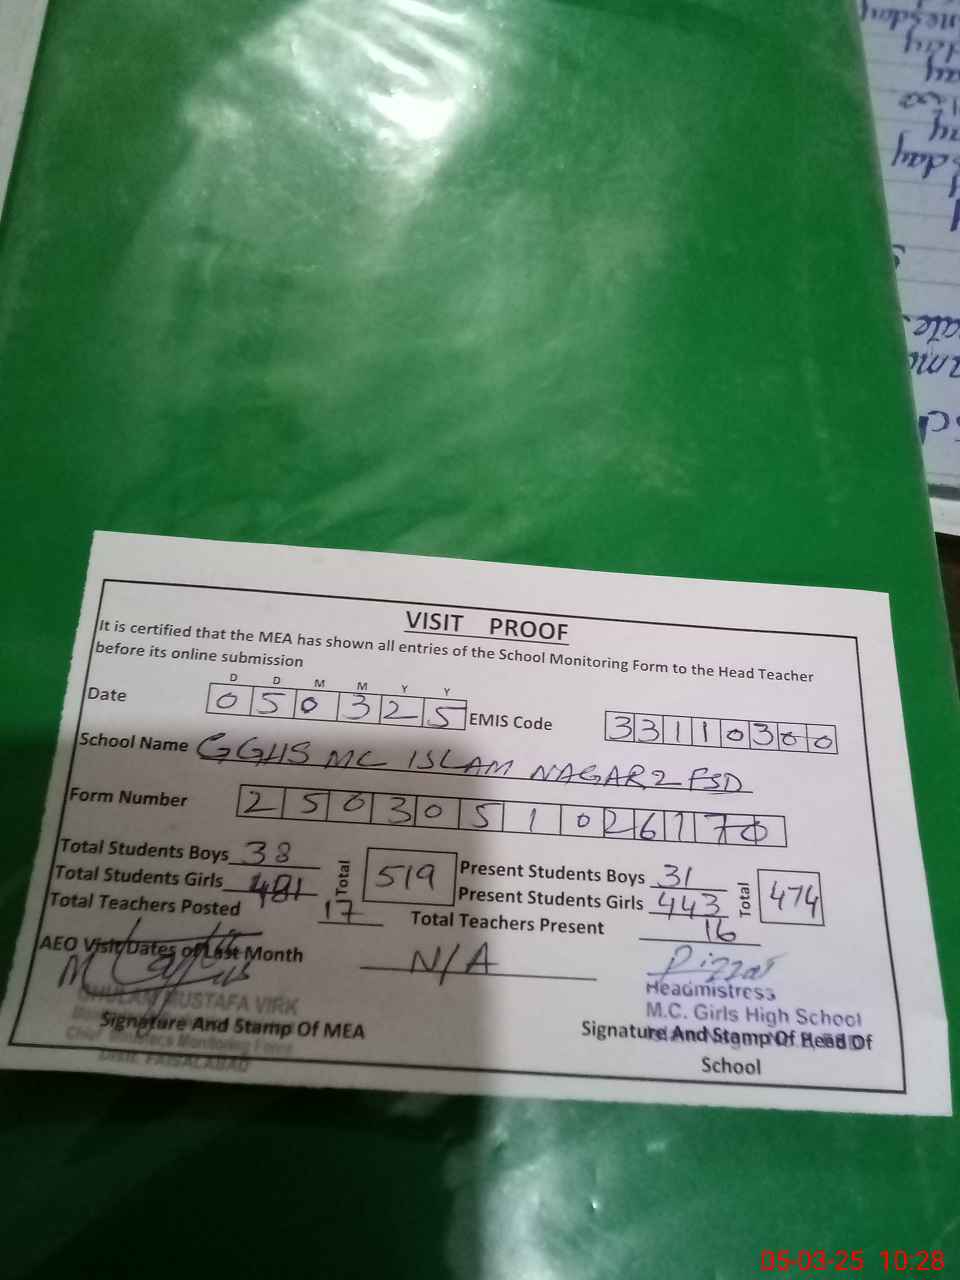 VISIT PROOF
It is certified that the MEA has shown all entries of the School Monitoring Form to the Head Teacher
before its online submission
D D M M Y Y
Date 0 5 0 3 2 5 EMIS Code 3 3 1 1 0 3 0 0
School Name GGHS MC ISLAM NAGAR 2 FSD
Form Number 2 5 0 3 0 5 1 0 2 6 1 7 0
Total Students Boys 38 Total 519 Present Students Boys 31 Total 474
Total Students Girls 481 Present Students Girls 443
Total Teachers Posted 17 Total Teachers Present 16
AEO Visit Dates of Last Month N/A
Headmistress
M.C. Girls High School
GHULAM MUSTAFA VIRK
Signature And Stamp Of MEA Signature And Stamp Of Head Of
School
Distt. FAISALABAD
05-03-25 10:28